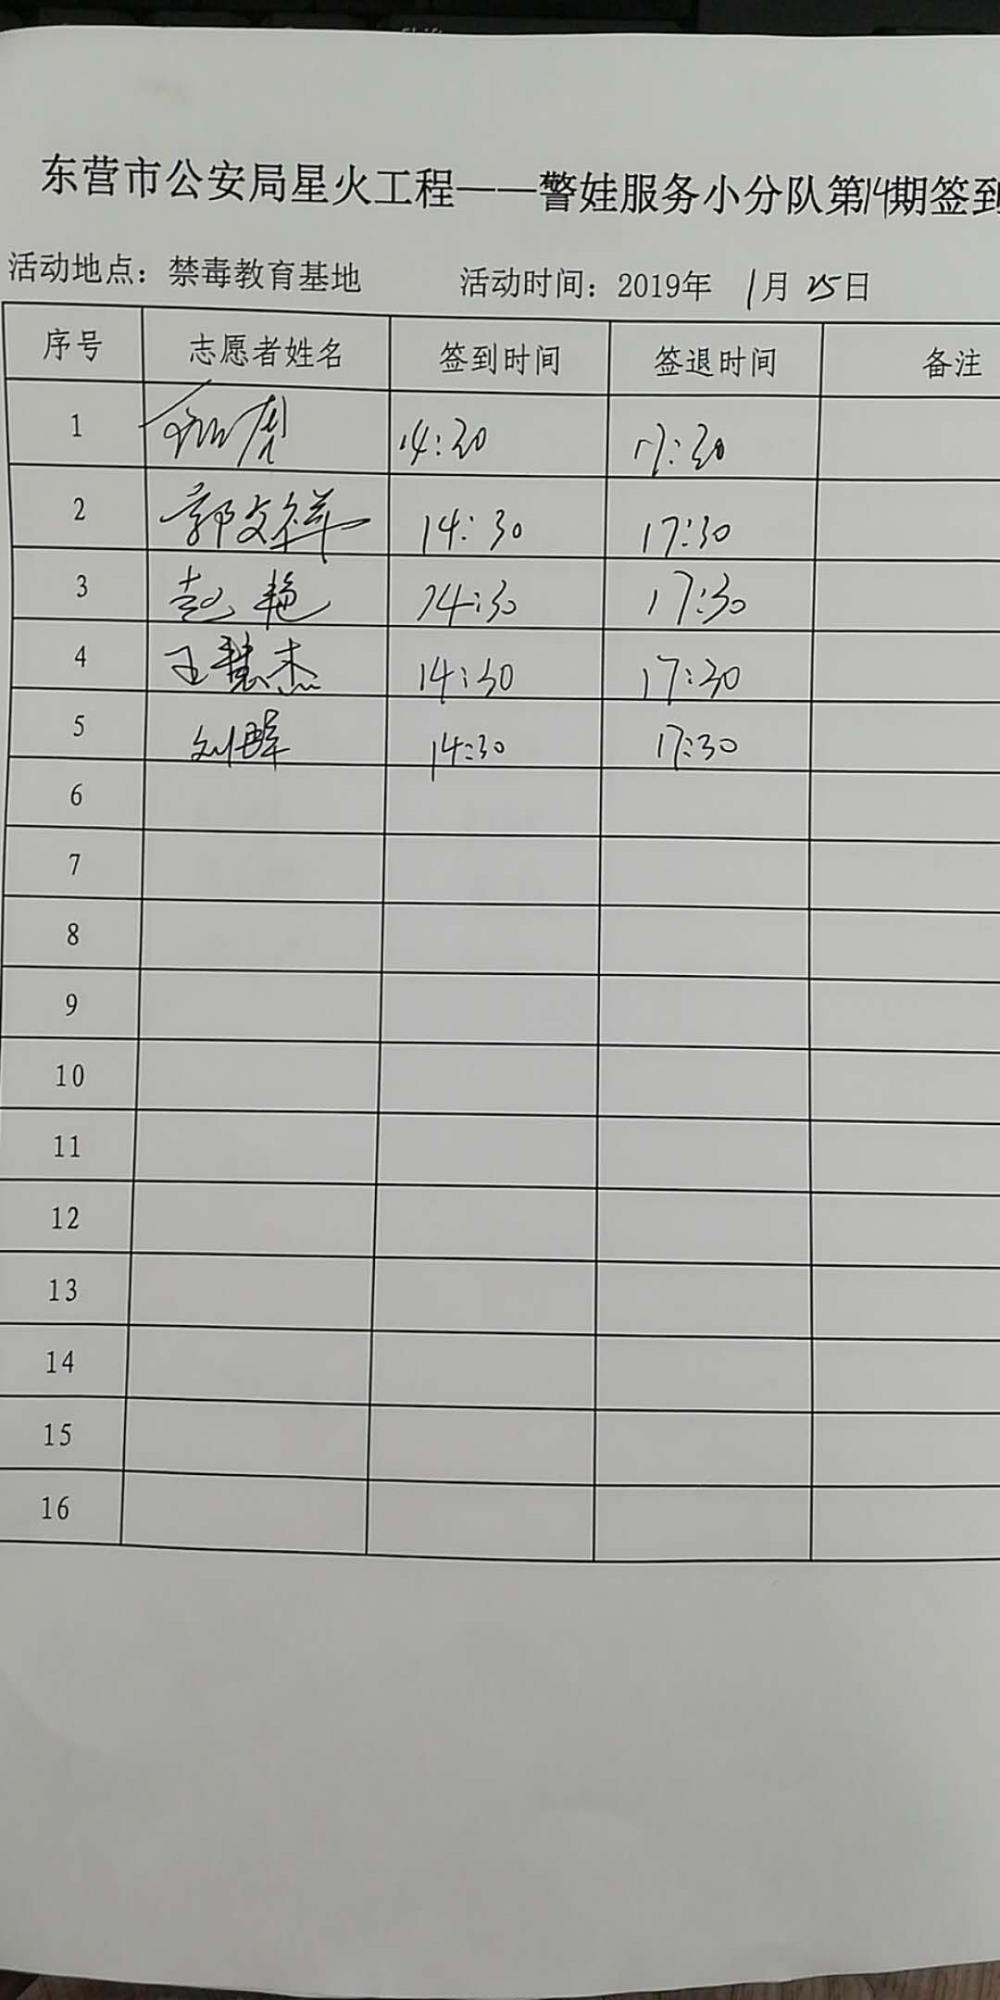 东营市公安局星火工程——警娃服务小分队第14期签到
活动地点：禁毒教育基地 活动时间：2019年 1月 25日
序号 志愿者姓名 签到时间 签退时间 备注
1 14:30 17:30
2 郭文祥 14:30 17:30
3 赵艳 14:30 17:30
4 王慧杰 14:30 17:30
5 刘辉 14:30 17:30
6
7
8
9
10
11
12
13
14
15
16